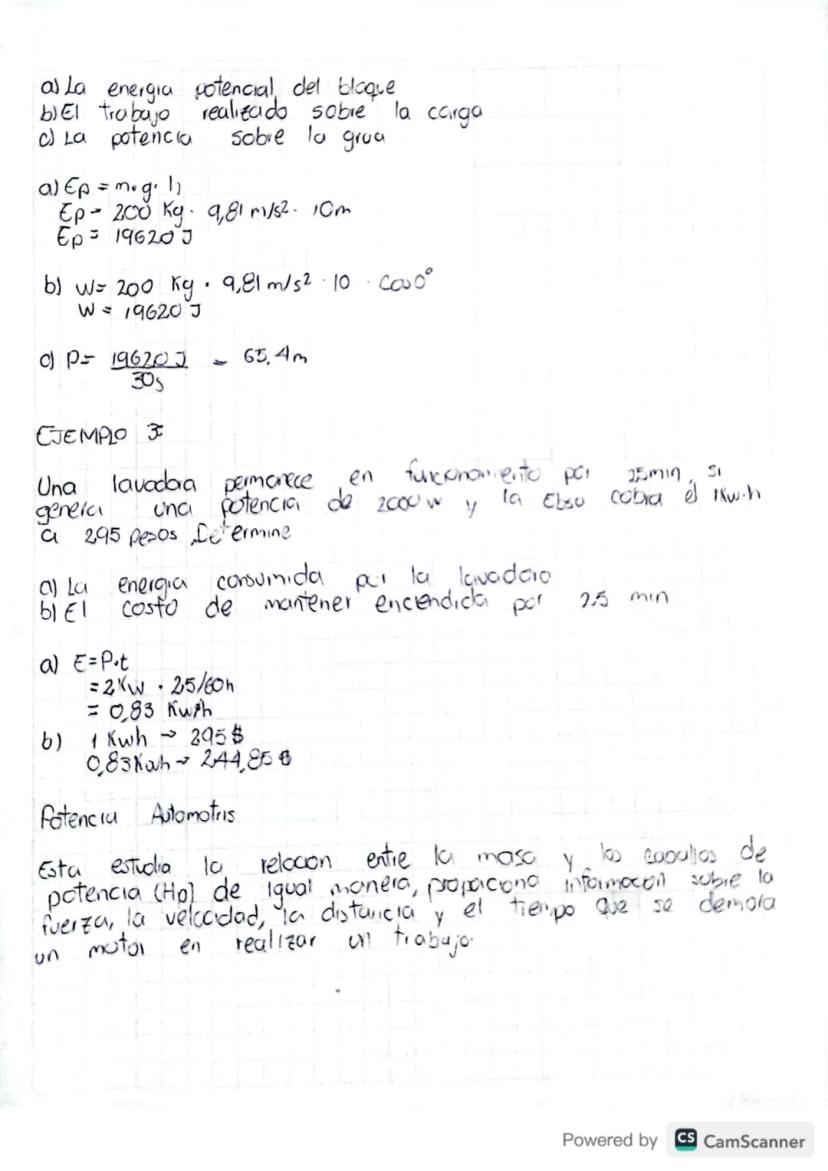 a) La energia potencial del bloque
b) El trabajo realizado sobre la carga
c) La potencia sobre la grua
a) Ep = m.g.h
Ep = 200 Kg. 9,81 m/s². 10m
Ep = 19620 J
b) W= 200 Kg . 9,81 m/s² . 10 . Cos 0°
W = 19620 J
c) P= 19620 J = 65,4m
30s
EJEMPLO 3:
Una lavadora permanece en funcionamiento por 25min, si
genera una potencia de 2000 w y la Ebsa cobra el 1Kw.h
a 295 pesos Determine
a) La energia consumida por la lavadora
b) El costo de mantener encendida por 25 min
a) E=P.t
= 2Kw . 25/60h
= 0,83 Kwh
b) 1 Kwh → 295 $
0,83Kwh → 244,85 $
Potencia Automotris
Esta estudia la relacion entre la masa y los caballos de
potencia (Hp) de igual manera, proporciona informacion sobre la
fuerza, la velocidad, la distancia y el tiempo que se demora
un motor en realizar un trabajo.
Powered by CS CamScanner